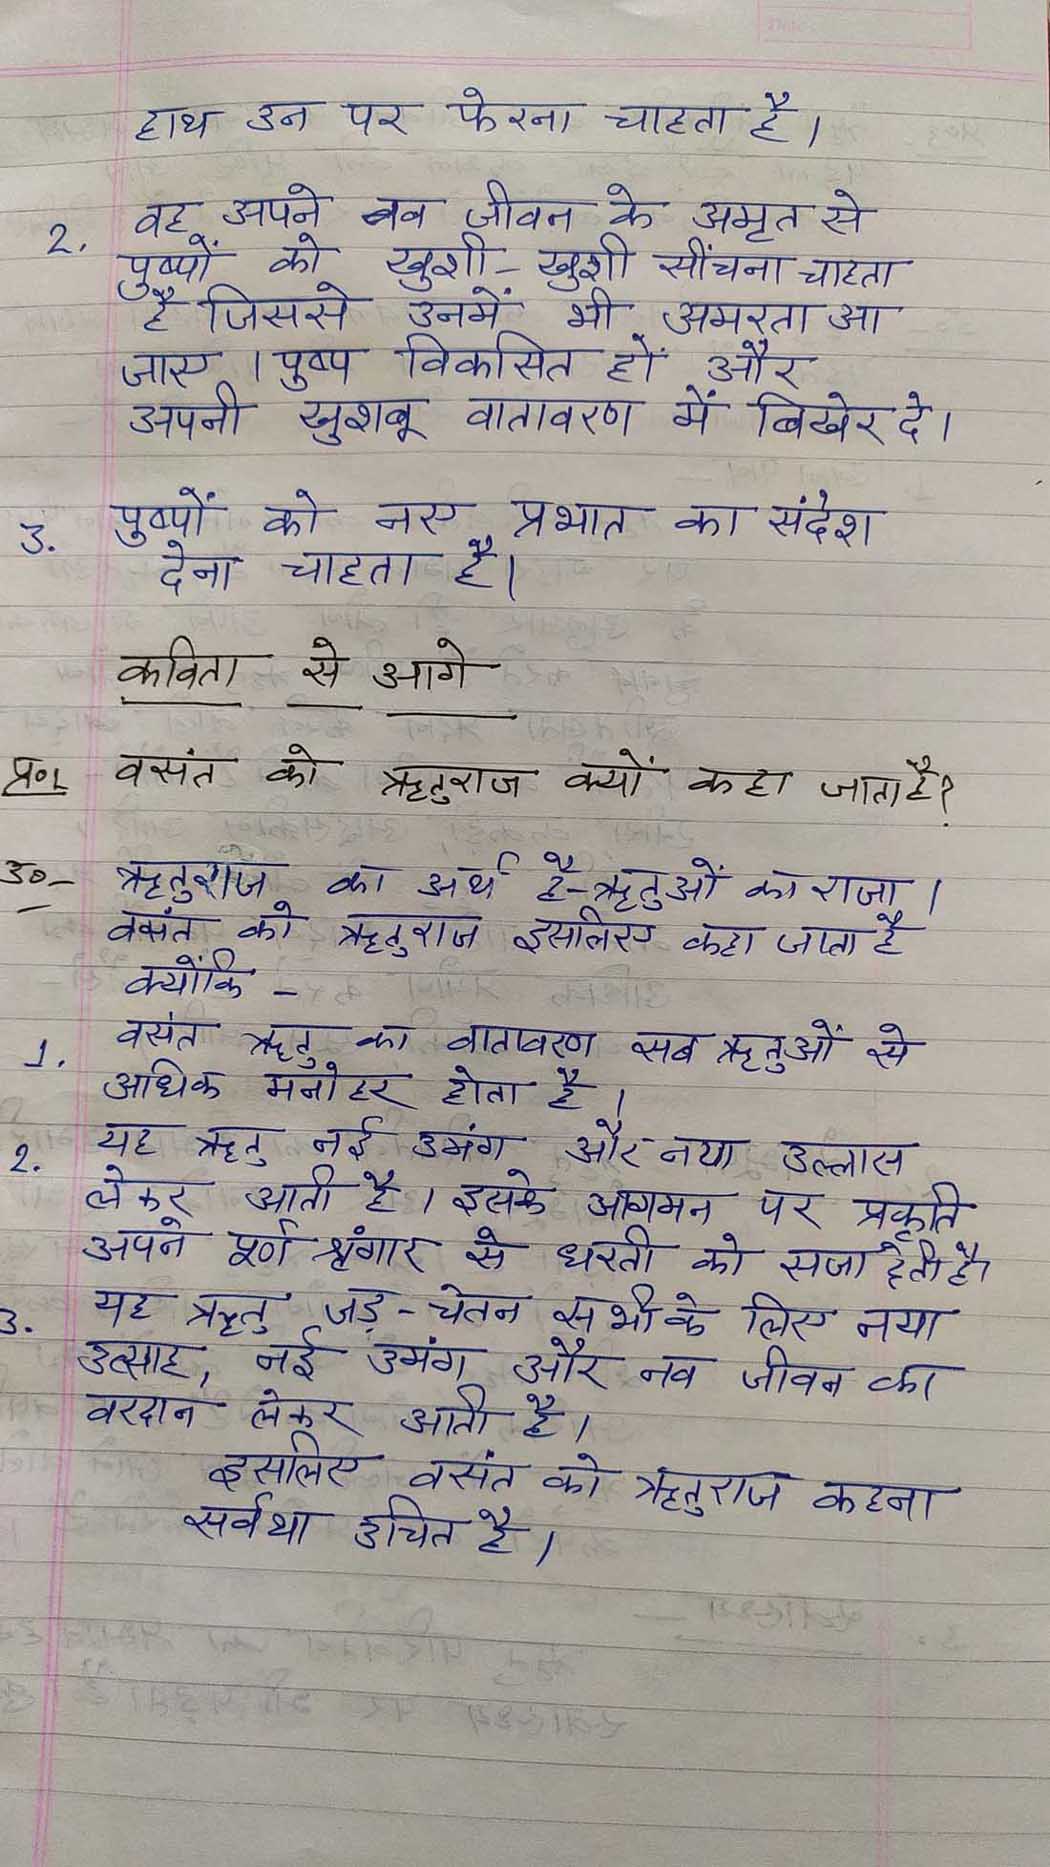 हाथ उन पर फेरना चाहता है।
2. वह अपने नव जीवन के अमृत से
पुष्पों को खुशी-खुशी सींचना चाहता
है जिससे उनमें भी अमरता आ
जाए। पुष्प विकसित हों और
अपनी खुशबू वातावरण में बिखेर दे।
3. पुष्पों को नए प्रभात का संदेश
देना चाहता है।
कविता से आगे
प्र०1 वसंत को ऋतुराज क्यों कहा जाता है?
उ०- ऋतुराज का अर्थ है-ऋतुओं का राजा।
वसंत को ऋतुराज इसलिए कहा जाता है
क्योंकि -
1. वसंत ऋतु का वातावरण सब ऋतुओं से
अधिक मनोहर होता है।
2. यह ऋतु नई उमंग और नया उल्लास
लेकर आती है। इसके आगमन पर प्रकृति
अपने पूर्ण श्रृंगार से धरती को सजा देती है।
3. यह ऋतु जड़-चेतन सभी के लिए नया
उत्साह, नई उमंग और नव जीवन का
वरदान लेकर आती है।
इसलिए वसंत को ऋतुराज कहना
सर्वथा उचित है।